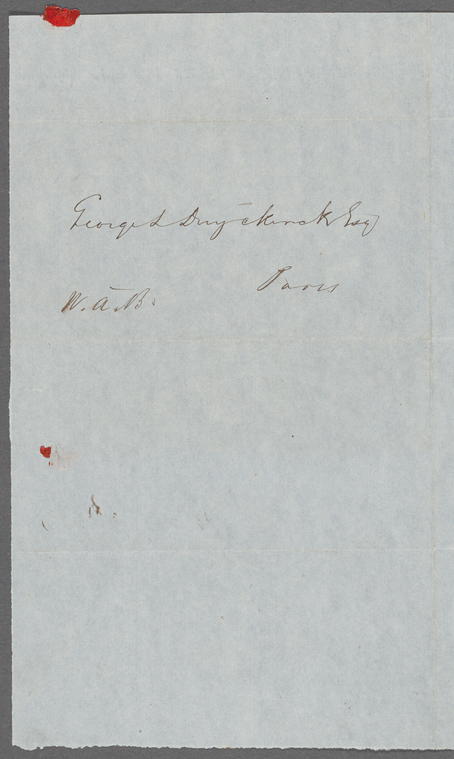 George L Duyckinck Esq
Paris
W. A. B.